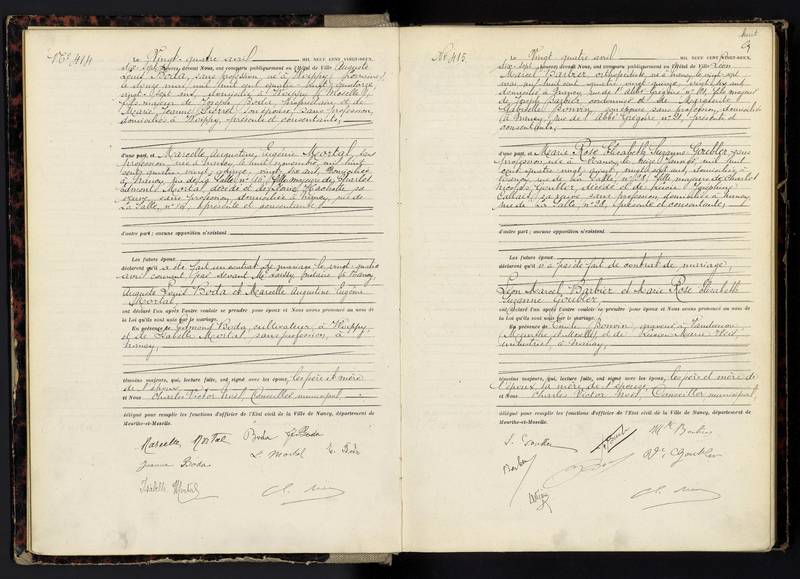 N° 414
Le Vingt quatre avril MIL NEUF CENT VINGT-DEUX,
dix sept heures, devant Nous, ont comparu publiquement en l'Hôtel de Ville Auguste
Louis Boda, sans profession, né à Woippy,
mil huit cent quatre vingt quatorze
vingt sept ans, domicilié à Woippy (Moselle)
fils majeur de Joseph Boda, propriétaire et de
Marie Jeanne son épouse, sans profession,
domiciliés à Woippy, présents et consentants,
d'une part, et Marcelle Augustine Eugénie Mortal, sans
profession, née à Nancy, le huit novembre mil huit
cent quatre vingt quinze, vingt six ans, domiciliée
à Nancy, rue de La Salle, n° fille majeure de Charles
Edmond Mortal, décédé et de Hachotte sa
veuve, sans profession, domiciliée à Nancy, rue de
La Salle, n° présente et consentante,
d'autre part ; aucune opposition n'existant.
Les futurs époux
déclarent qu'il a été fait un contrat de mariage le vingt quatre
avril courant par devant Me notaire à Nancy,
Auguste Louis Boda et Marcelle Augustine Eugénie
Mortal,
ont déclaré l'un après l'autre vouloir se prendre pour époux et Nous avons prononcé au nom
de la Loi qu'ils sont unis par le mariage.
En présence de Edmond Boda, cultivateur, à Woippy,
et de Isabelle Mortal, sans profession, à
Nancy,
témoins majeurs, qui, lecture faite, ont signé avec les époux, les père et mère
de l'époux
et Nous Charles Victor Noël, Conseiller municipal,
délégué pour remplir les fonctions d'officier de l'Etat civil de la Ville de Nancy, département de
Meurthe-et-Moselle.
Marcelle Mortal Boda Boda
Jeanne Boda L. Mortal
Isabelle Mortal Ch. Noël
N° 415
Le Vingt quatre avril MIL NEUF CENT VINGT-DEUX,
dix sept heures, devant Nous, ont comparu publiquement en l'Hôtel de Ville Léon
Marcel Barbier, orthopédiste, né à Nancy, le vingt sept
mil huit cent quatre vingt quinze, vingt six ans,
domicilié à Nancy, rue de l'Abbé Grégoire n° 21, fils majeur
de Joseph Barbier, cordonnier et de Marguerite
Gabrielle Bonvin, son épouse sans profession, domiciliés
à Nancy, rue de l'Abbé Grégoire n° 21, présents et
consentants,
d'une part, et Marie Rose Elisabeth Suzanne Goubler, sans
profession, née à Nancy, le mil huit
cent quatre vingt quinze, vingt sept ans, domiciliée à
Nancy, rue de La Salle, n° 28, fille majeure de Charles
Nicolas Goubler, décédé et de Joséphine
sa veuve sans profession, domiciliée à Nancy,
rue de La Salle, n° 28, présente et consentante,
d'autre part ; aucune opposition n'existant.
Les futurs époux
déclarent qu'il n'a pas été fait de contrat de mariage,
Léon Marcel Barbier et Marie Rose Elisabeth
Suzanne Goubler,
ont déclaré l'un après l'autre vouloir se prendre pour époux et Nous avons prononcé au nom de
la Loi qu'ils sont unis par le mariage.
En présence de Emile Bonvin, graveur à
(Meurthe et Moselle) et de Marie
à Nancy,
témoins majeurs, qui, lecture faite, ont signé avec les époux, les père et mère de
l'époux, la mère de l'épouse,
et Nous Charles Victor Noël, Conseiller municipal,
délégué pour remplir les fonctions d'officier de l'Etat civil de la Ville de Nancy, département de
Meurthe-et-Moselle.
S. Goubler Barbier
Barbier Goubler
Ch. Noël